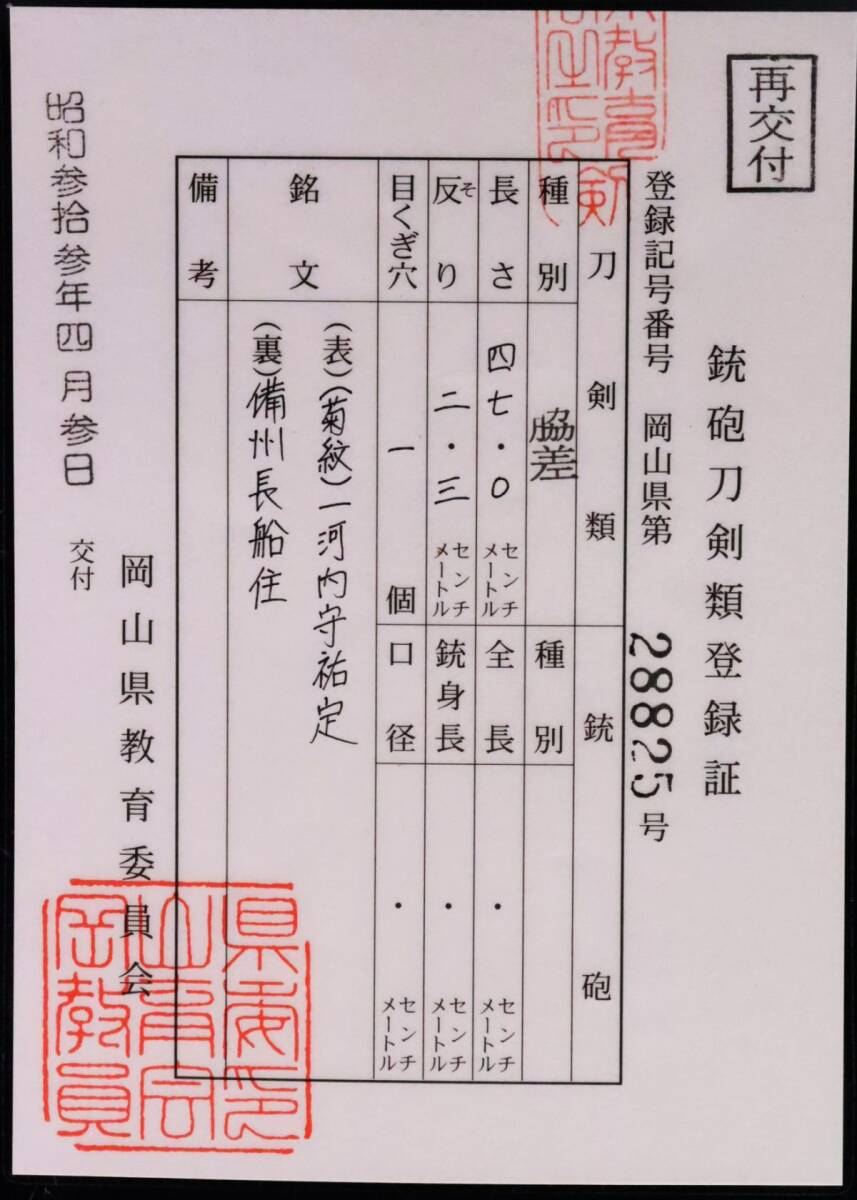 再交付
銃砲刀剣類登録証
登録記号番号 岡山県第 28825 号
刀剣類
銃砲
種別
脇差
種別
長さ
四七・〇 センチメートル
全長
・ センチメートル
反り
そ
二・三 センチメートル
銃身長
・ センチメートル
目くぎ穴
一 個
口径
・ センチメートル
銘文
(表)(菊紋)一河内守祐定
(裏)備州長船住
備考
岡山県教育委員会
昭和参拾参年四月参日 交付
県委印
山育会
岡教員